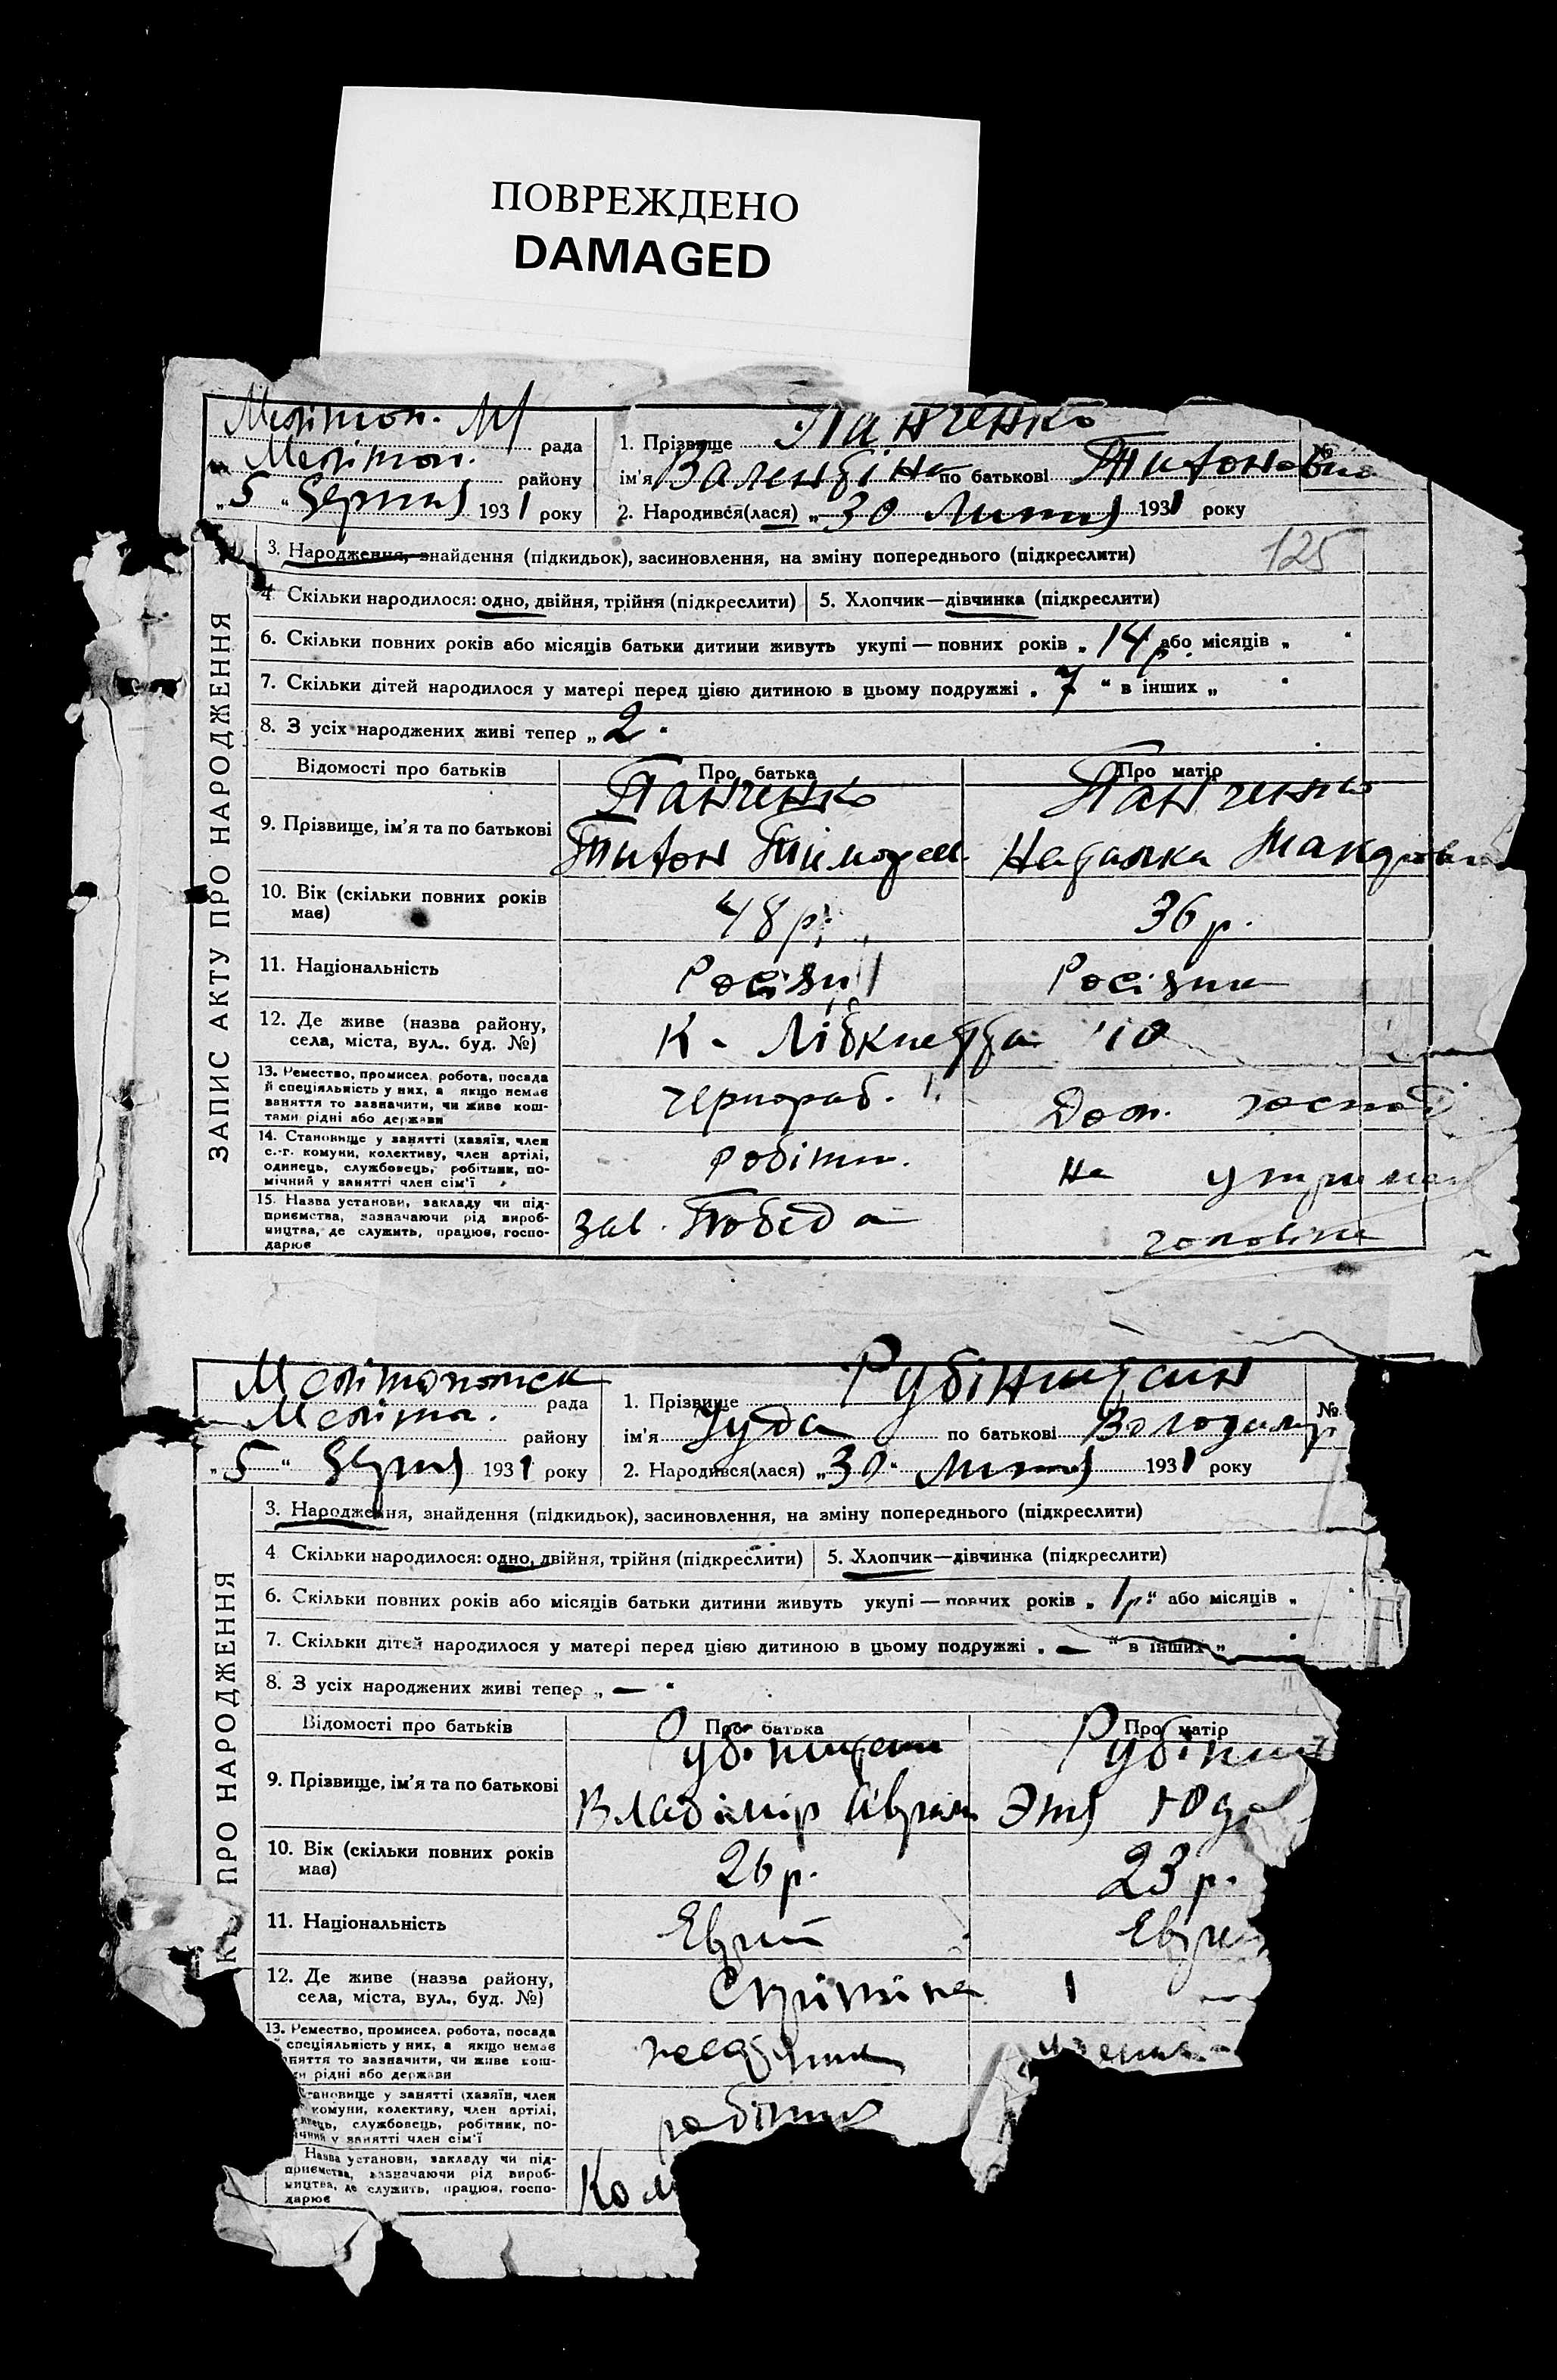 ПОВРЕЖДЕНО
DAMAGED
Мелітоп. М/ рада
Мелітоп. району
„5“ 1931 року
1. Прізвище Панченко
№
ім'я Валентіна по батькові Титоновна
2. Народився(лася) „30 Лютня 1931 року
125
ЗАПИС АКТУ ПРО НАРОДЖЕННЯ
3. Народження, знайдення (підкидьок), засиновлення, на зміну попереднього (підкреслити)
4. Скільки народилося: одно, двійня, трійня (підкреслити) 5. Хлопчик—дівчинка (підкреслити)
6. Скільки повних років або місяців батьки дитини живуть укупі — повних років „14 р. або місяців „
7. Скільки дітей народилося у матері перед цією дитиною в цьому подружжі „7“ в інших „
8. З усіх народжених живі тепер „2
Відомості про батьків Про батька Про матір
9. Прізвище, ім'я та по батькові
Панченко Панченко
Титон Тимофеев. Наталка
10. Вік (скільки повних років має) 48 р. 36 р.
11. Національність Росіян Росіянка
12. Де живе (назва району, села, міста, вул., буд. №) К. Лібкнехта 10
13. Ремество, промисел, робота, посада
й спеціяльність у них, а якщо немає
заняття то зазначити, чи живе кош-
тами рідні або держави
чернораб. Дом. господ
14. Становище у занятті (хазяїн, член
с.-г. комуни, колективу, член артілі,
одинець, службовець, робітник, по-
мічний у занятті член сім'ї
робітн. На утриман
15. Назва установи, закладу чи під-
приємства, зазначаючи рід вироб-
ництва, де служить, працює, госпо-
дарює
зав. Победа чоловіка
Мелітопольск рада
Меліто. району
„5“ 1931 року
1. Прізвище Рубінштейн
№
ім'я Іуда по батькові Володимир
2. Народився(лася) „30 Лютня 1931 року
ПРО НАРОДЖЕННЯ
3. Народження, знайдення (підкидьок), засиновлення, на зміну попереднього (підкреслити)
4 Скільки народилося: одно, двійня, трійня (підкреслити) 5. Хлопчик—дівчинка (підкреслити)
6. Скільки повних років або місяців батьки дитини живуть укупі — повних років „1 р.“ або місяців „
7. Скільки дітей народилося у матері перед цією дитиною в цьому подружжі „—“ в інших „
8. З усіх народжених живі тепер „—“
Відомості про батьків Про батька Про матір
9. Прізвище, ім'я та по батькові
Рубінштейн Рубінш
Владімір Аврам Этя Юд
10. Вік (скільки повних років має) 26 р. 23 р.
11. Національність Еврей Евре
12. Де живе (назва району, села, міста, вул., буд. №) 1
13. Ремество, промисел, робота, посада
спеціяльність у них, а якщо немає
няття то зазначити, чи живе кош-
и рідні або держави
становище у занятті (хазяїн, член
комуни, колективу, член артілі,
инець, службовець, робітник, по-
ічний у занятті член сім'ї
робітник
Назва установи, закладу чи під-
приємства, зазначаючи рід вироб-
ництва, де служить, працює, госпо-
дарює
Ком